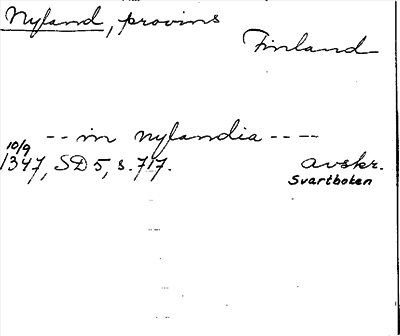 Nyland, provins
Finland
-- in nylandia ----
10/9
1347, SD 5, s. 717. avskr.
Svartboken